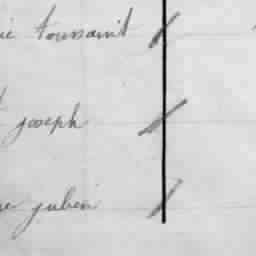 toussaint
joseph
julien